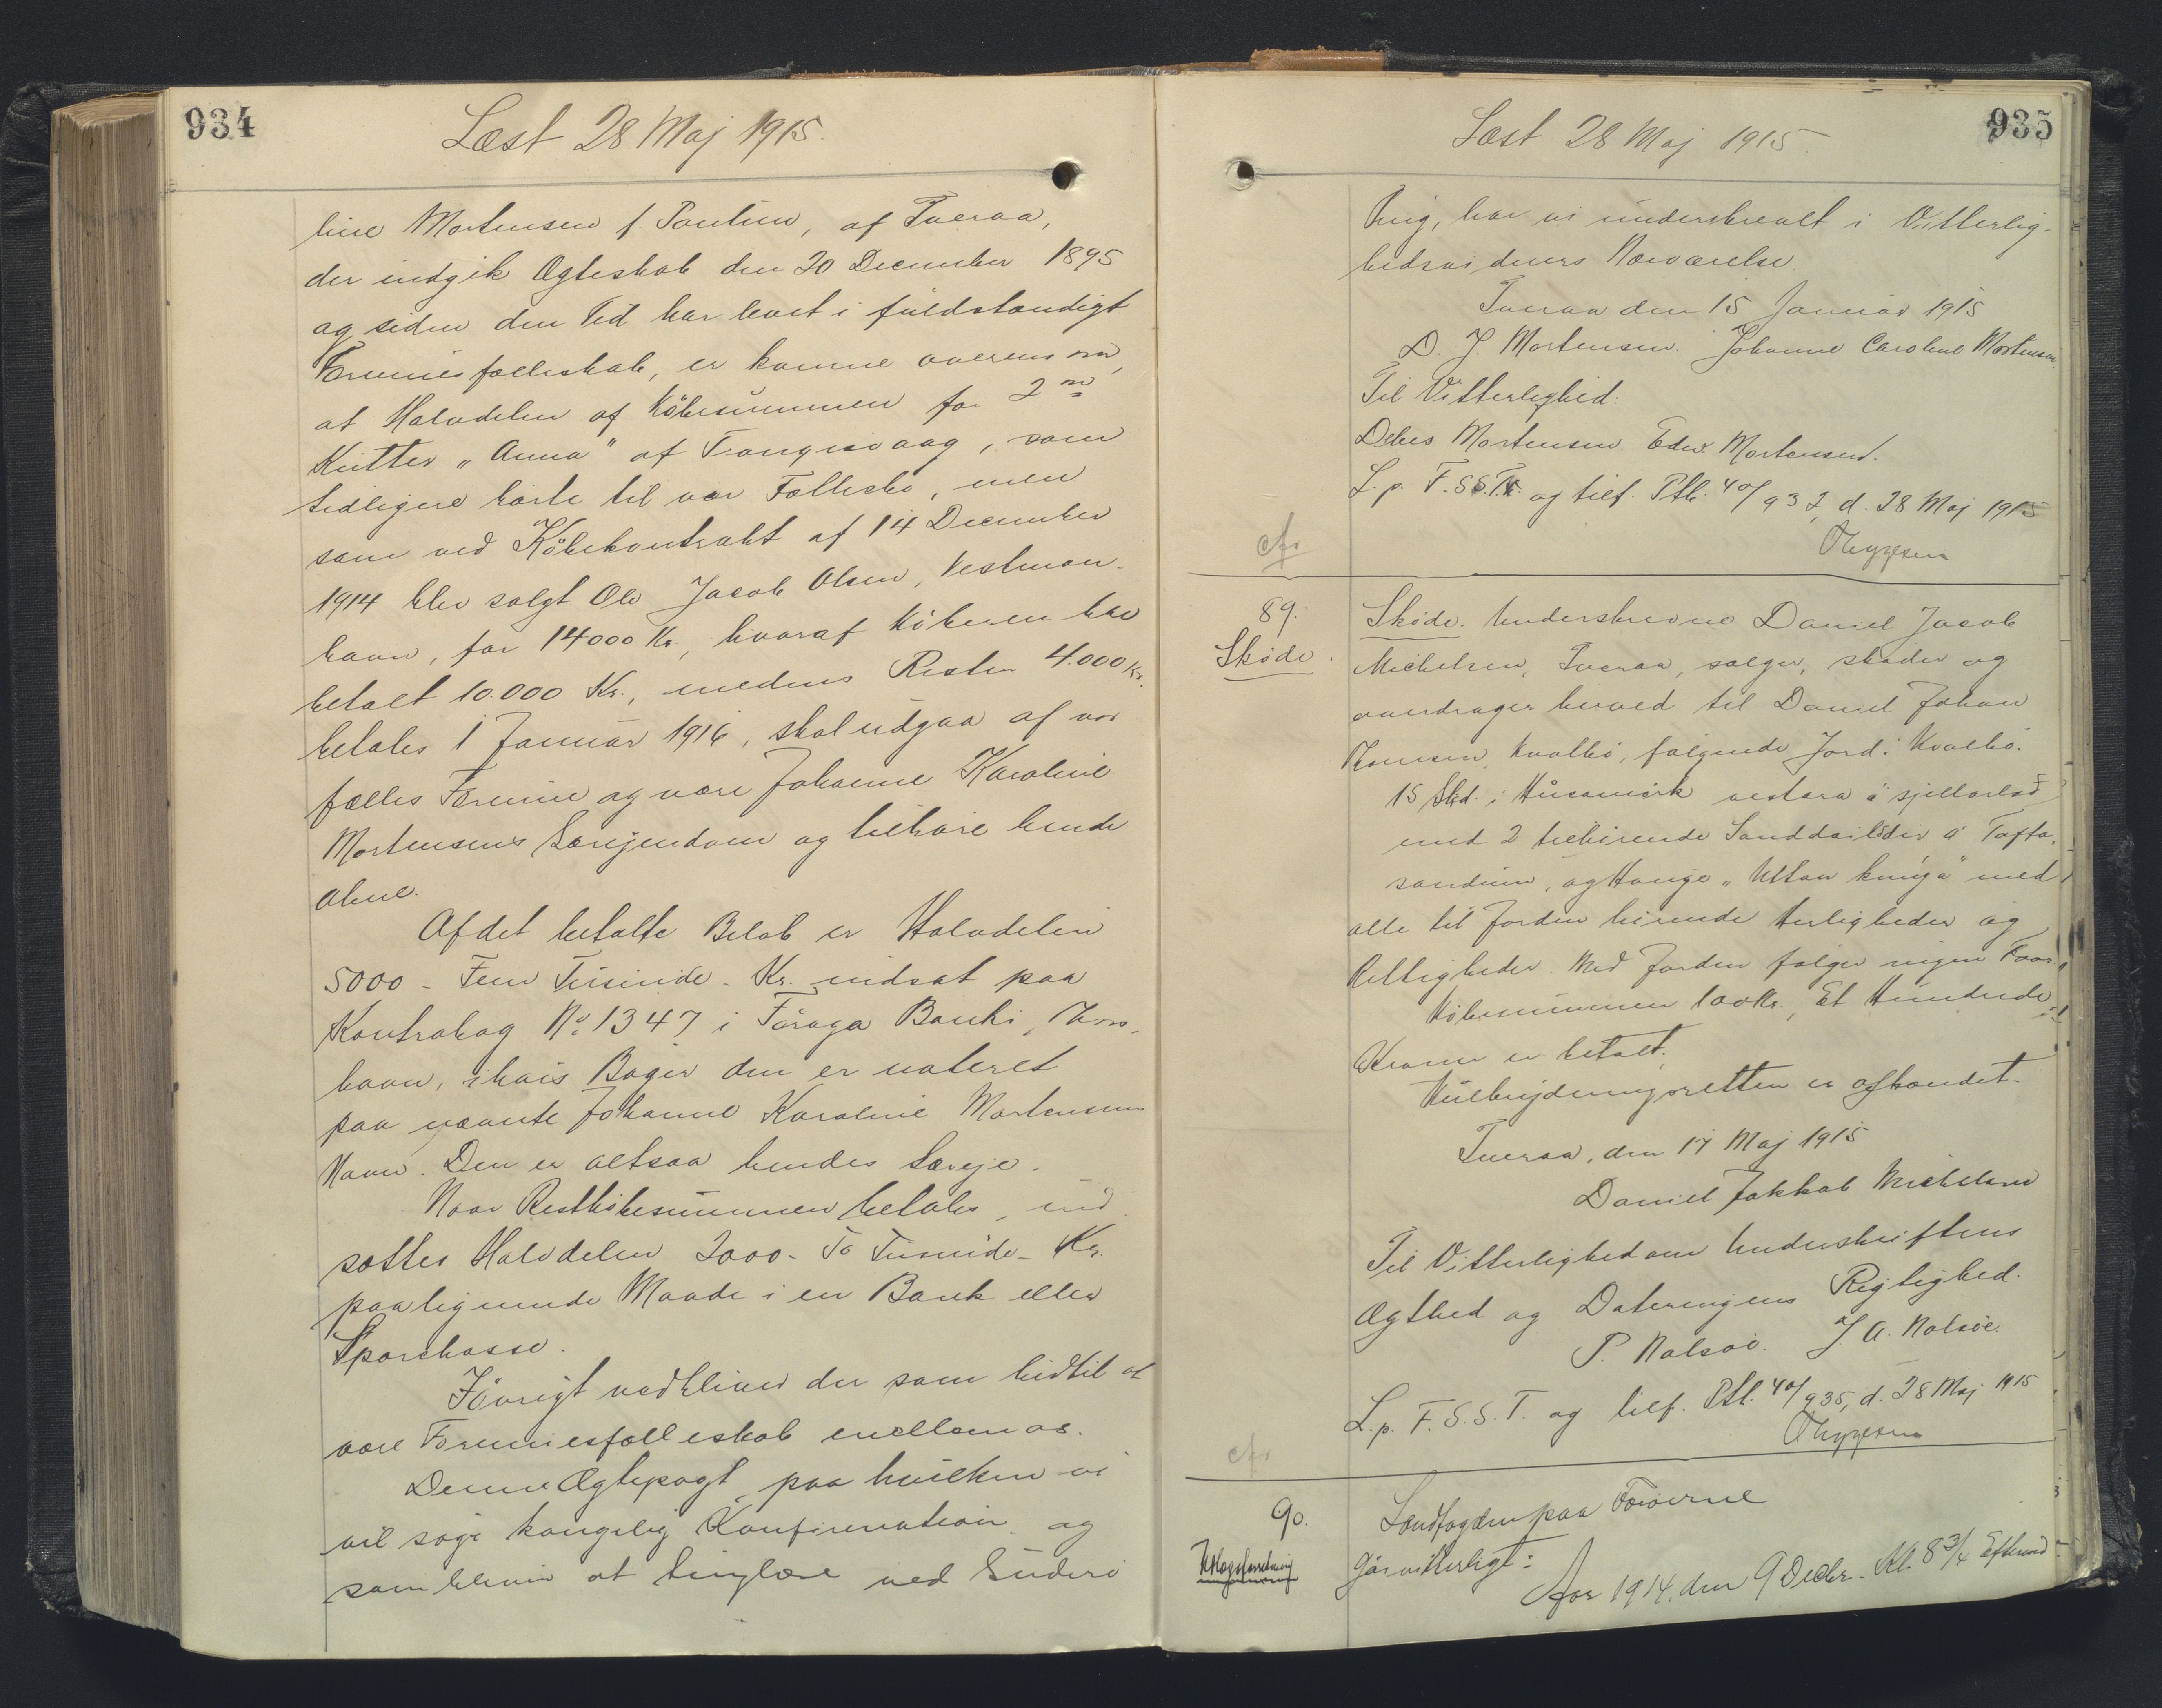 934
Læst 28 Maj 1915.
line Mortensen f. Poulsen, af Tveraa,
der indgik Ægteskab den 20 December 1895
og siden den Tid har levet i fuldstændigt
Formuesfælleskab, er komne overens om,
at Halvdelen af Købesummen for 2 m
Kutter "Anna" af Trangisvaag, som
tidligere hørte til vor Fællesbo, men
som ved Købekontrakt af 14 December
1914 blev solgt Ole Jacob Olsen, Vestman-
havn, for 14000 Kr., hvoraf Køberen har
betalt 10.000 Kr., medens Resten 4.000 Kr.
betales 1 Januar 1916, skal udgaa af vor
fælles Formue og være Johanne Karoline
Mortensens Særejendom og tilhøre hende
alene.
Af det betalte Beløb er Halvdelen
5000 - Fem Tusinde - Kr. indsat paa
Kontrabog No. 1347 i Føroya Banki, Thors-
havn, i hvis Bøger den er noteret
paa nævnte Johanne Karoline Mortensens
Navn. Den er altsaa hendes Særeje.
Naar Restkøbesummen betales, ind
sættes Halvdelen 2000 - To Tusinde - Kr.
paa lignende Maade i en Bank eller
Sparekasse.
Iøvrigt vedbliver der som hidtil at
være Formuesfælleskab mellem os.
Denne Ægtepagt, paa hvilken vi
vil søge kongelig Konfirmation og
som bliver at tinglæse ved Suderø
935
Læst 28 Maj 1915
Ting, har vi underskrevet i Vitterlig-
hedsvidners Nærværelse.
Tveraa den 15 Januar 1915
D. J. Mortensen. Johanne Caroline Mortensen
Til Vitterlighed:
Debes Mortensen. Edw. Mortensen.
L. p. F. S. S. T. og tilf. Ptb. 40/932, d. 28 Maj 1915
89.
Skøde.
Skøde. Underskrevne Daniel Jacob
Michelsen, Tveraa, sælger, skøder og
overdrager herved til Daniel Johan
Thomsen, Kvalbø, følgende Jord i Kvalbø:
15 Skd. i Húsamørk vestara á sjellarlað
med 2 tilhørende Sanddailðir á Tofta-
sandum, og Hauge "Uttan kníga" med
alle til Jorden hørende Herligheder og
Rettigheder. Med Jorden følger ingen Faar.
Købesummen 100 Kr., Et Hundrede
Kroner er betalt.
Hvilbydningsretten er afhændet.
Tveraa, den 17 Maj 1915
Daniel Jakkob Michelsen
Til Vitterlighed om Underskriftens
Ægthed og Dateringens Rigtighed.
P. Nolsøe. J. A. Nolsøe.
L. p. F. S. S. T. og tilf. Ptb. 40/935, d. 28 Maj 1915
90.
Landfogden paa Færøerne
Gør vitterligt:
Aar 1914, den 9 Decbr. Kl. 8 3/4 Eftermd